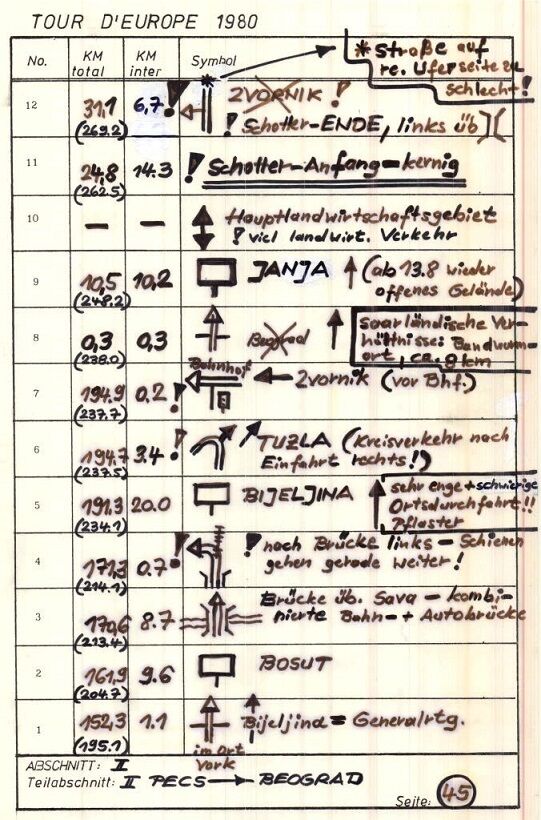 TOUR D'EUROPE 1980
No. KM total KM inter Symbol
* Straße auf
re. Uferseite zu
schlecht!
12 31,1 (269.2) 6,7 ! ZVORNIK !
! Schotter-ENDE, links üb )(
11 24,8 (262.5) 14.3 ! Schotter-Anfang = kernig
10 — — Hauptlandwirtschaftsgebiet
! viel landwirt. Verkehr
9 10,5 (248.2) 10,2 JANJA (ab 13.8 wieder
offenes Gelände)
8 0,3 (238.0) 0,3 Beograd
saarländische Ver-
hältnisse: Bandwurm-
ort, ca. 9 km
7 194.9 (237.7) 0.2 ! Bahnhof Zvornik (vor Bhf.)
6 194.7 (237.5) 3.4 ! TUZLA (Kreisverkehr nach
Einfahrt rechts!)
5 191.3 (234.1) 20.0 BIJELJINA
sehr enge + schwierige
Ortsdurchfahrt!!
Pflaster
4 171,3 (214.1) 0.7 ! ! nach Brücke links – Schienen
gehen gerade weiter!
3 170,6 (213.4) 8.7 Brücke üb. Sava – kombi-
nierte Bahn- + Autobrücke
2 161,9 (204.7) 9.6 BOSUT
1 152,3 (195.1) 1.1 Bijeljina = Generalrtg.
im Ort
Vork
ABSCHNITT: II
Teilabschnitt: II PECS → BEOGRAD
Seite: 45